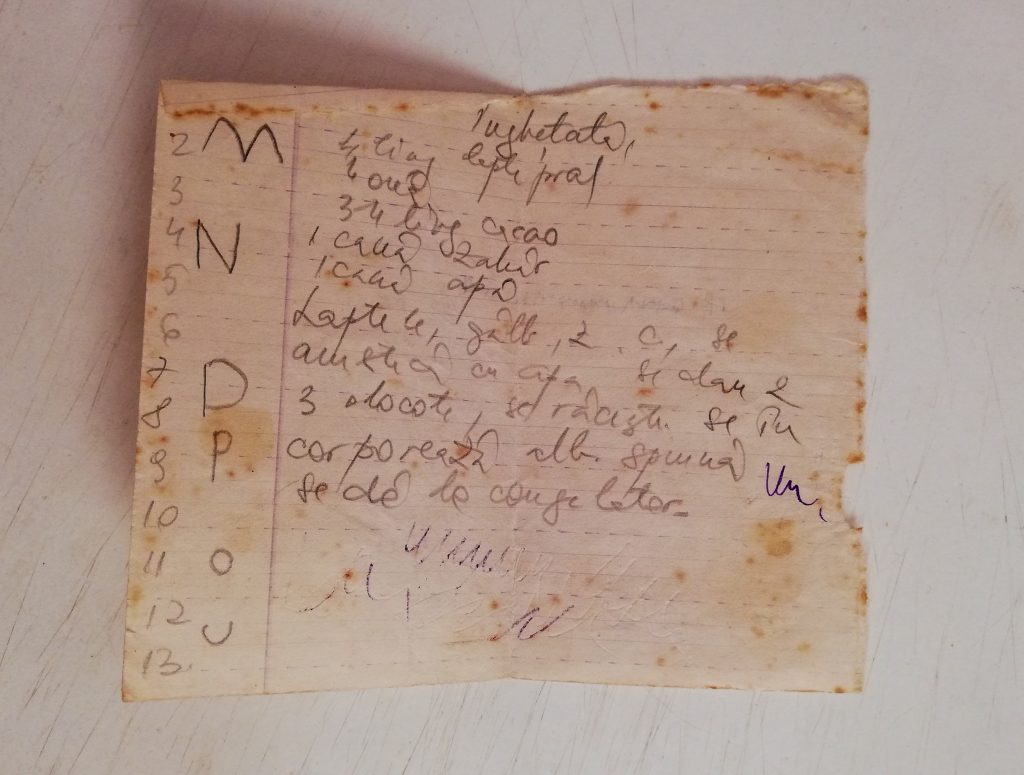 Înghețată,
2 M 4 ling lapte praf
3 4 ouă
3-4 ling cacao
4 N 1 cană zahăr
5 1 cană apă
6 Laptele, gălb, z. c, se
7 amestecă cu apa, se dau 2
D
8 3 clocote, se răcește. se în
9 P corporează alb. spumă
10 se dă la congelator.
11 O
12 U
13